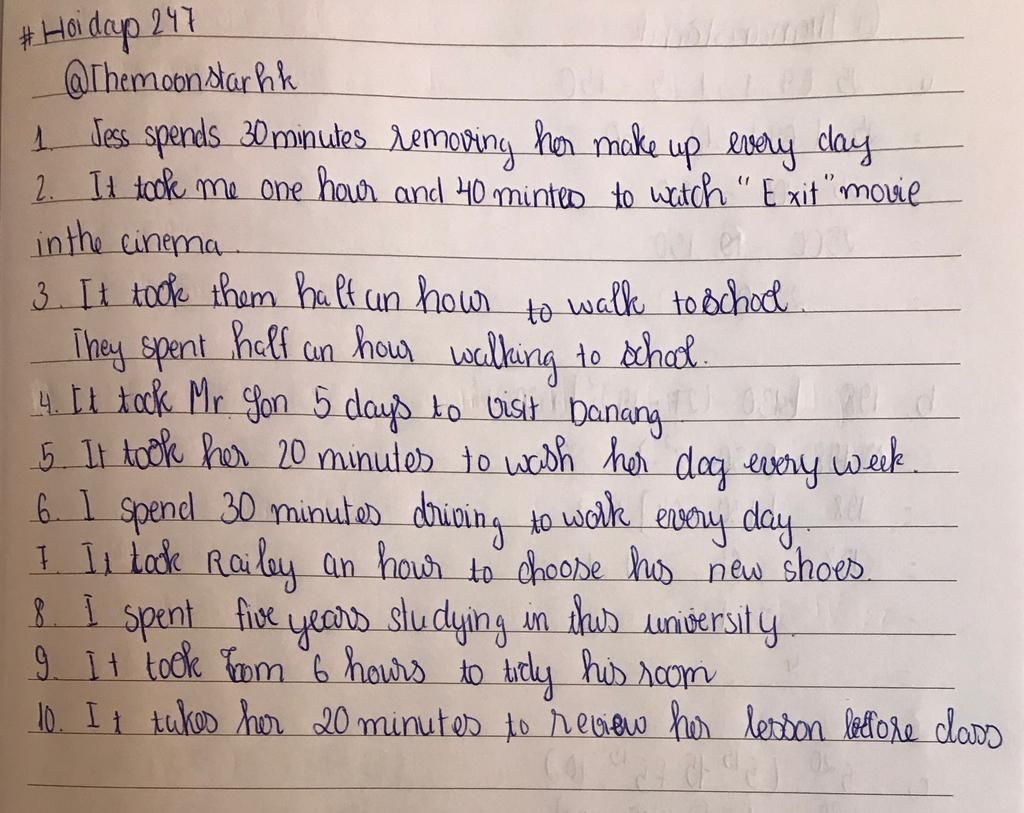 #Hoidap247
@Themoonstarhk
1. Jess spends 30 minutes removing her make up every day
2. It took me one hour and 40 mintes to watch "Exit" movie
in the cinema.
3. It took them half an hour to walk to school.
They spent half an hour walking to school.
4. It took Mr Jon 5 days to visit Danang
5. It took her 20 minutes to wash her dog every week.
6. I spend 30 minutes driving to work every day.
7. It took Railey an hour to choose his new shoes.
8. I spent five years studying in this university.
9. It took Tom 6 hours to tidy his room
10. It takes her 20 minutes to review her lesson before class